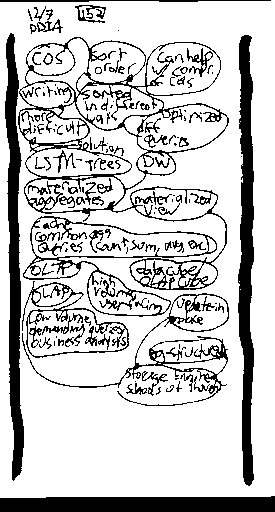 12/7 152
DDIA
COS
Sort order
Can help w/ compr. of cols
writing
more difficult
Sorted in different ways
optimized diff queries
solution
LSTM-trees
DW
materialized aggregates
materialized view
cache common agg queries (count, sum, avg, etc)
OLTP
data cube/ OLAP cube
high volume, user facing
OLAP
update-in place
Low volume, demanding queries business analysts
log-structured
Storage Engines schools of thought